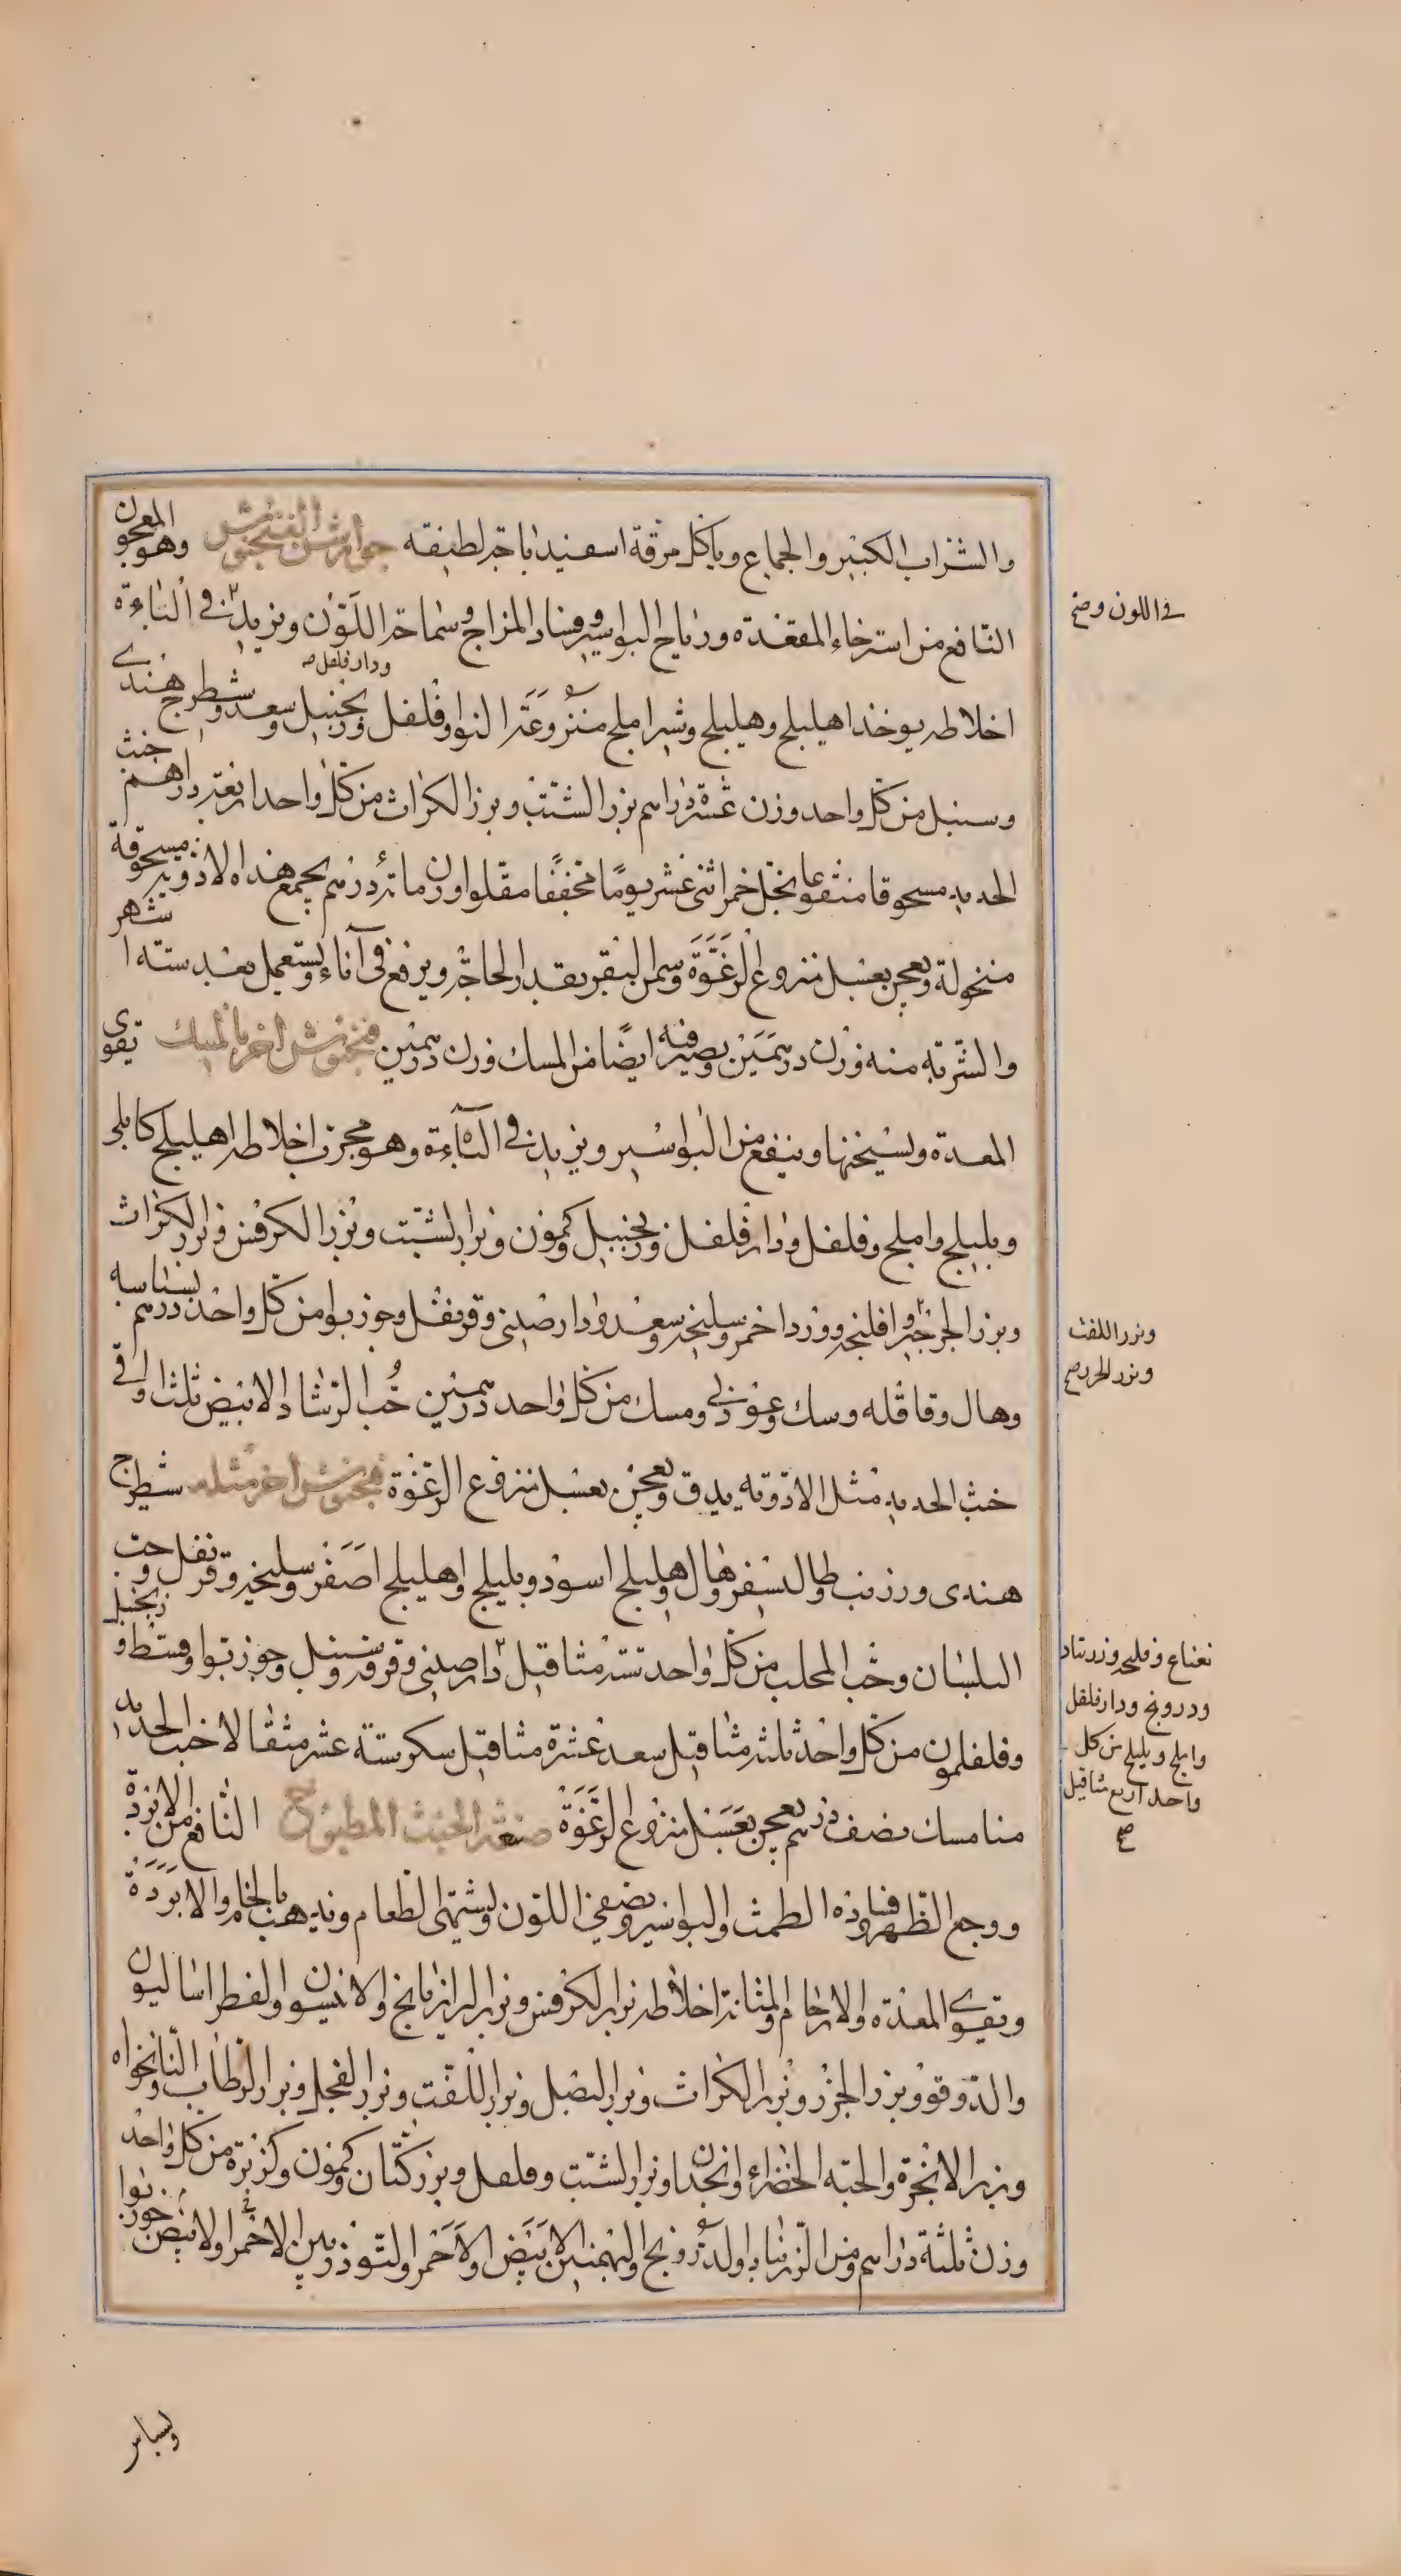 والشراب الكثير والجماع وياكل مرقة اسفيدباجة لطيفة جوارشن الفنجنوش وهو المعجون
النافع من استرخاء المقعدة ورياح البواسير وفساد المزاج وسماجة اللون ويزيد في الباءة
في اللون وصح
ودارفلفل صح
اخلاطه يوخذ اهليلج وهليلج وشير املج منزوعة النوا وفلفل وزنجبيل وسعد وشطرج هندي
وسنبل من كل واحد وزن عشرة دراهم بزر الشبت وبزر الكراث من كل واحد اربعة دراهم خبث
الحديد مسحوقا منقوعا بخل خمر اثنى عشر يوما مجففا مقلوا وزن مائة درهم يجمع هذه الادوية مسحوقة
منخولة ويعجن بعسل منزوع الرغوة وسمن البقر بقدر الحاجة ويرفع في اناء ويستعمل بعد ستة اشهر
والشربة منه وزن درهمين ويصير فيه ايضا من المسك وزن درهمين فنجنوش اخر بالمسك يقوى
المعدة ويسخنها وينفع من البواسير ويزيد في الباءة وهو مجرب اخلاطه اهليلج كابلي
وبليلج واملج وفلفل ودارفلفل وزنجبيل وكمون وبزر الشبت وبزر الكرفس وبزر الكراث
وبزر الجرجير وافلنجه وورد احمر وسليخه وسعد ودارصيني وقرنفل وجوزبوا من كل واحد درهم بسباسه
وبزر اللفت
وبزر الجزر صح
وهال وقاقله وسك وعود ني ومسك من كل واحد درهمين حب الرشاد الابيض ثلث اواقي
خبث الحديد مثل الادوية يدق ويعجن بعسل منزوع الرغوة فنجنوش اخر مثله شيطرج
هندى وزرنب وطاليسفر وهال واهليلج اسود وبليلج واهليلج اصفر وسليخه وقرنفل وحب
البلسان وحب المحلب من كل واحد ستة مثاقيل دارصيني وقرفه وسنبل وجوزبوا وقسط وزنجبيل
نعناع وفلنجه وزرنباد
ودرونج ودارفلفل
واملج وبليلج من كل
واحد اربع مثاقيل
صح
وفلفلمون من كل واحد ثلثة مثاقيل سعد عشرة مثاقيل سكر ستة عشر مثقالا خبث الحديد
منا مسك نصف درهم يعجن بعسل منزوع الرغوة صنعة الخبث المطبوخ النافع من الابردة
ووجع الظهر وفساد الطمث والبواسير ويصفي اللون ويشهي الطعام ويذهب بالخام والابردة
ويقوي المعدة والارحام والمثانة اخلاطه بزر الكرفس وبزر الرازيانج والانيسون والفطراساليون
والدوقو وبزر الجزر وبزر الكراث وبزر البصل وبزر اللفت وبزر الفجل وبزر الرطاب والنانخواه
وبزر الانجرة والحبه الخضراء وانجدان وبزر الشبت وفلفل وبزر كتان وكمون وكزبرة من كل واحد
وزن ثلثة دراهم ومن الزرنباد والدرونج والبهمنين الابيض والاحمر والتوذريين الاحمر والابيض وجوزبوا
وبسباس